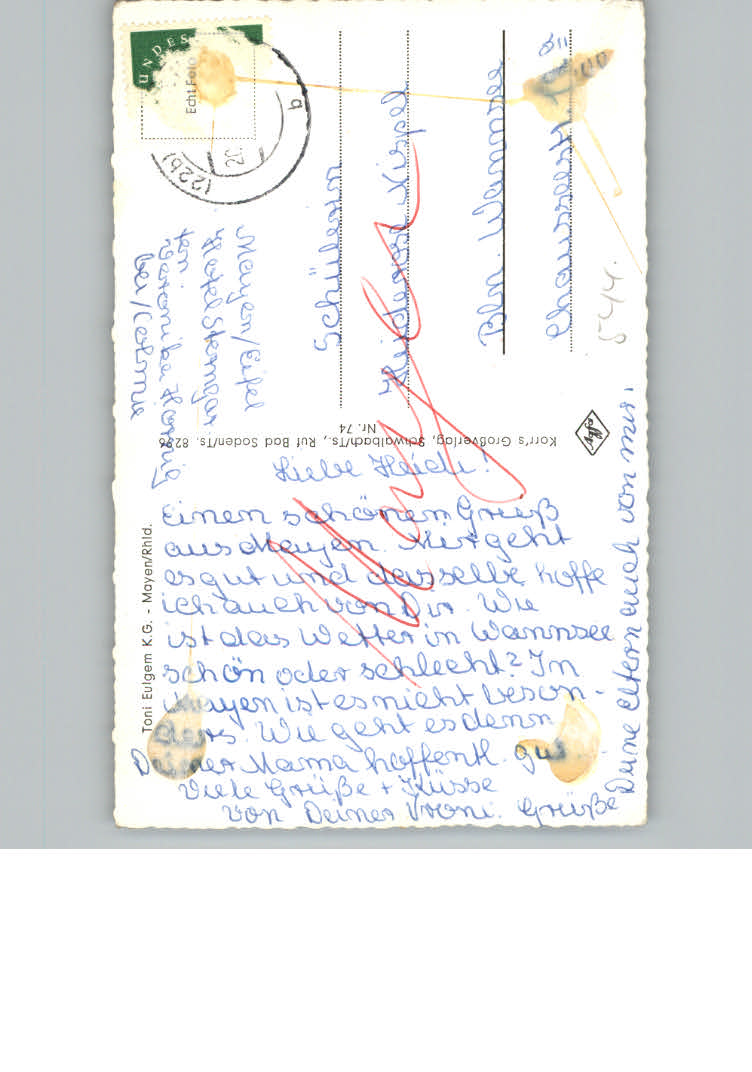 Liebe Heidi!
Einen schönen Gruß
aus Mayen. Mir geht
es gut und dasselbe hoffe
ich auch von Dir. Wie
ist das Wetter in Wannsee
schön oder schlecht? In
Mayen ist es nicht beson-
ders. Wie geht es denn
Deiner Mama hoffentl. gut
Viele Grüße + Küsse
von Deiner Vroni. Grüße
Deine Eltern auch von mir.
Toni Eulgem K.G. - Mayen/Rhld.
Korr's Großverlag, Schwalbach/Ts., Ruf Bad Soden/Ts. 8296
Nr. 74
Veronika
bei
Mayen/Eifel
UNDES
Echt Foto
(22b)
b
Schülerin
Bln. Wannsee
544